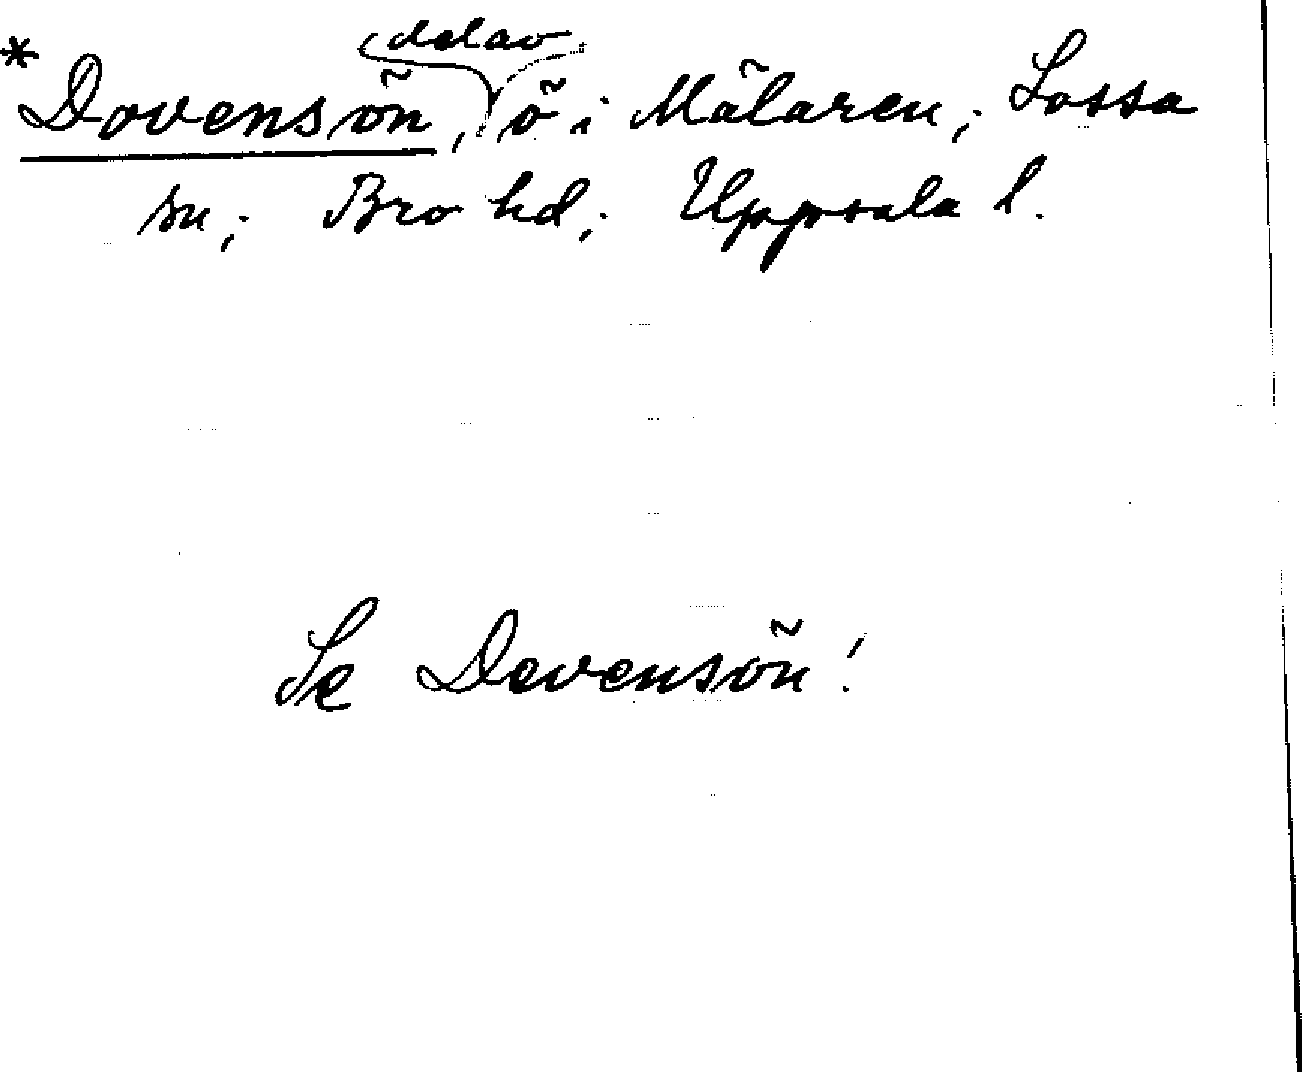 *Dovensön, (del av) ö i Mälaren; Låssa
sn; Bro hd; Uppsala l.
Se Devensön!